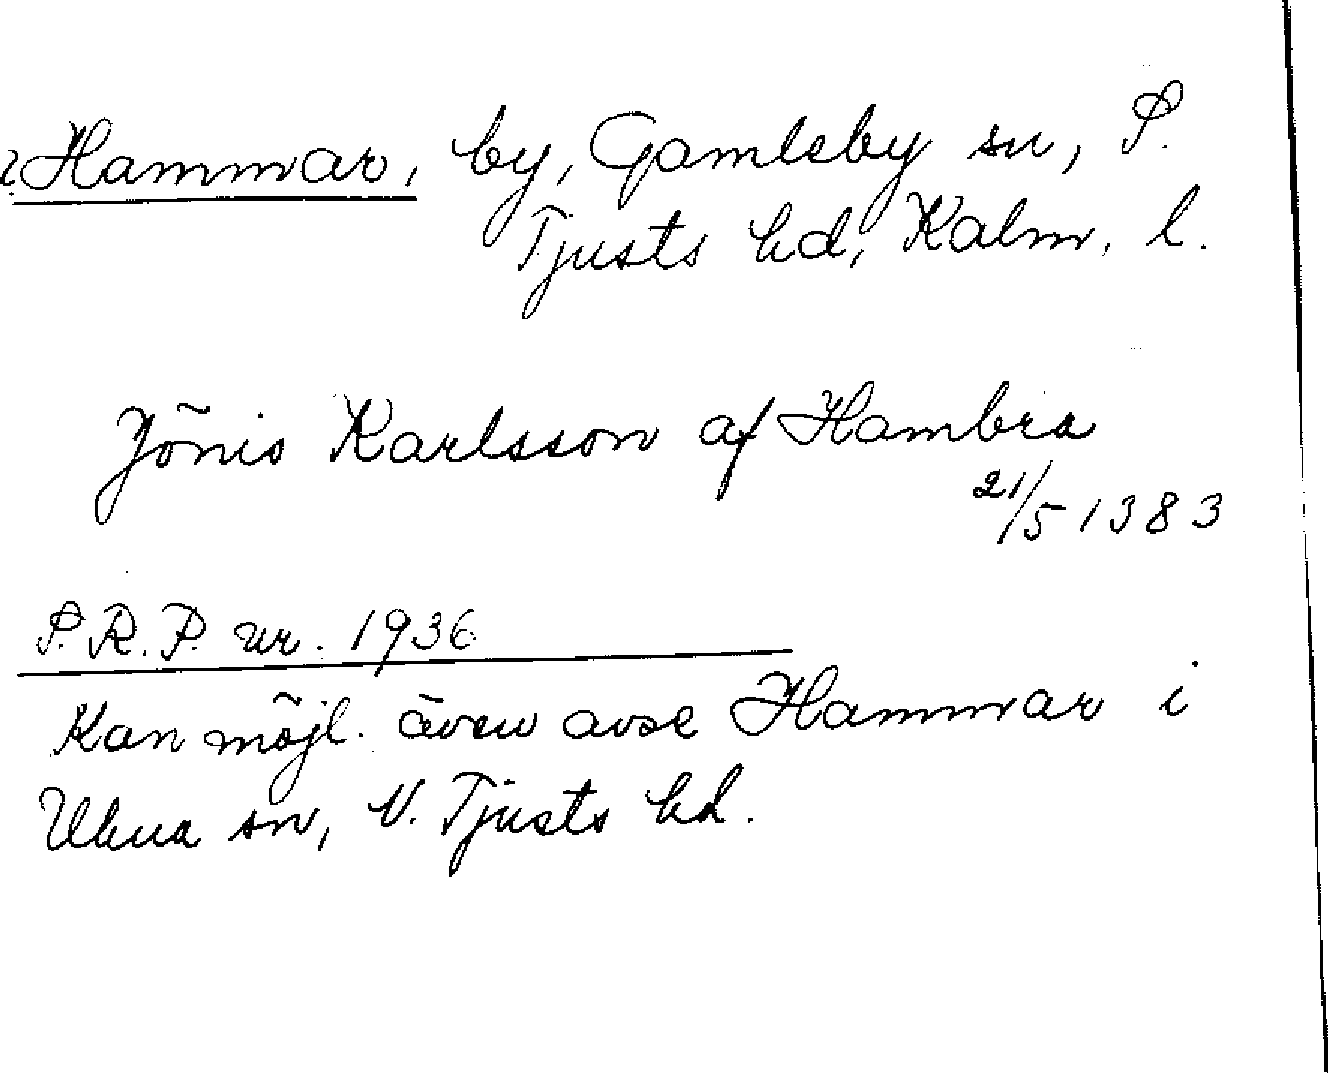 ? Hammar, by, Gamleby sn, S.
Tjusts hd, Kalm. l.
Jönis Karlsson af Hambra
21/5 1383
S.R.P. nr. 1936
Kan möjl. även avse Hammar i
Ukna sn, N. Tjusts hd.